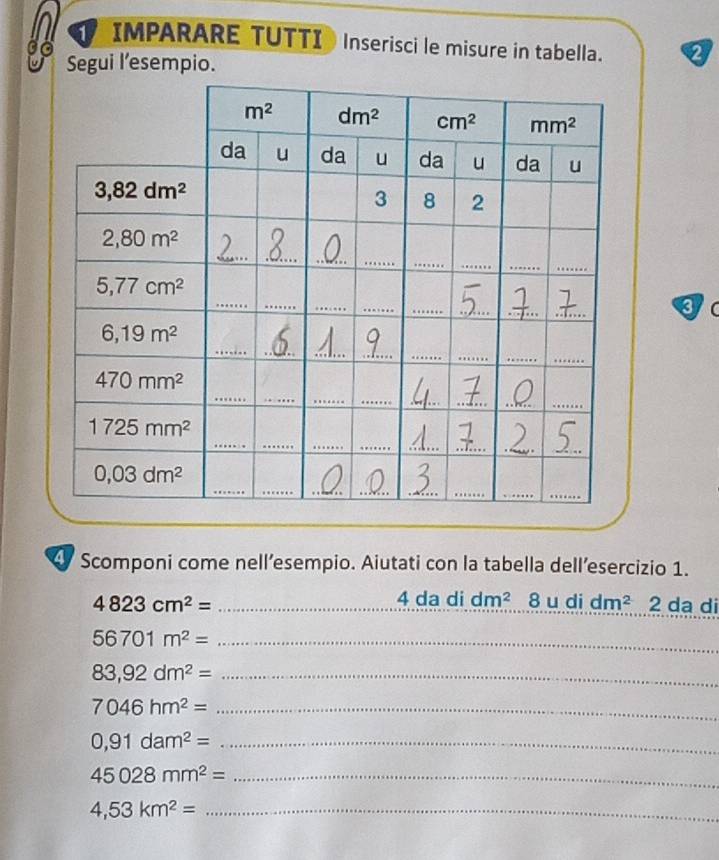 1 IMPARARE TUTTI Inserisci le misure in tabella. 2
Segui l'esempio.
m² dm² cm² mm²
da u da u da u da u
3,82 dm² 3 8 2
2,80 m² 2 8 0
5,77 cm² 5 7 7
3 C
6,19 m² 6 1 9
470 mm² 4 7 0
1 725 mm² 1 7 2 5
0,03 dm² 0 0 3
4 Scomponi come nell'esempio. Aiutati con la tabella dell'esercizio 1.
4 823 cm² = 4 da di dm² 8 u di dm² 2 da di
56 701 m² =
83,92 dm² =
7 046 hm² =
0,91 dam² =
45 028 mm² =
4,53 km² =